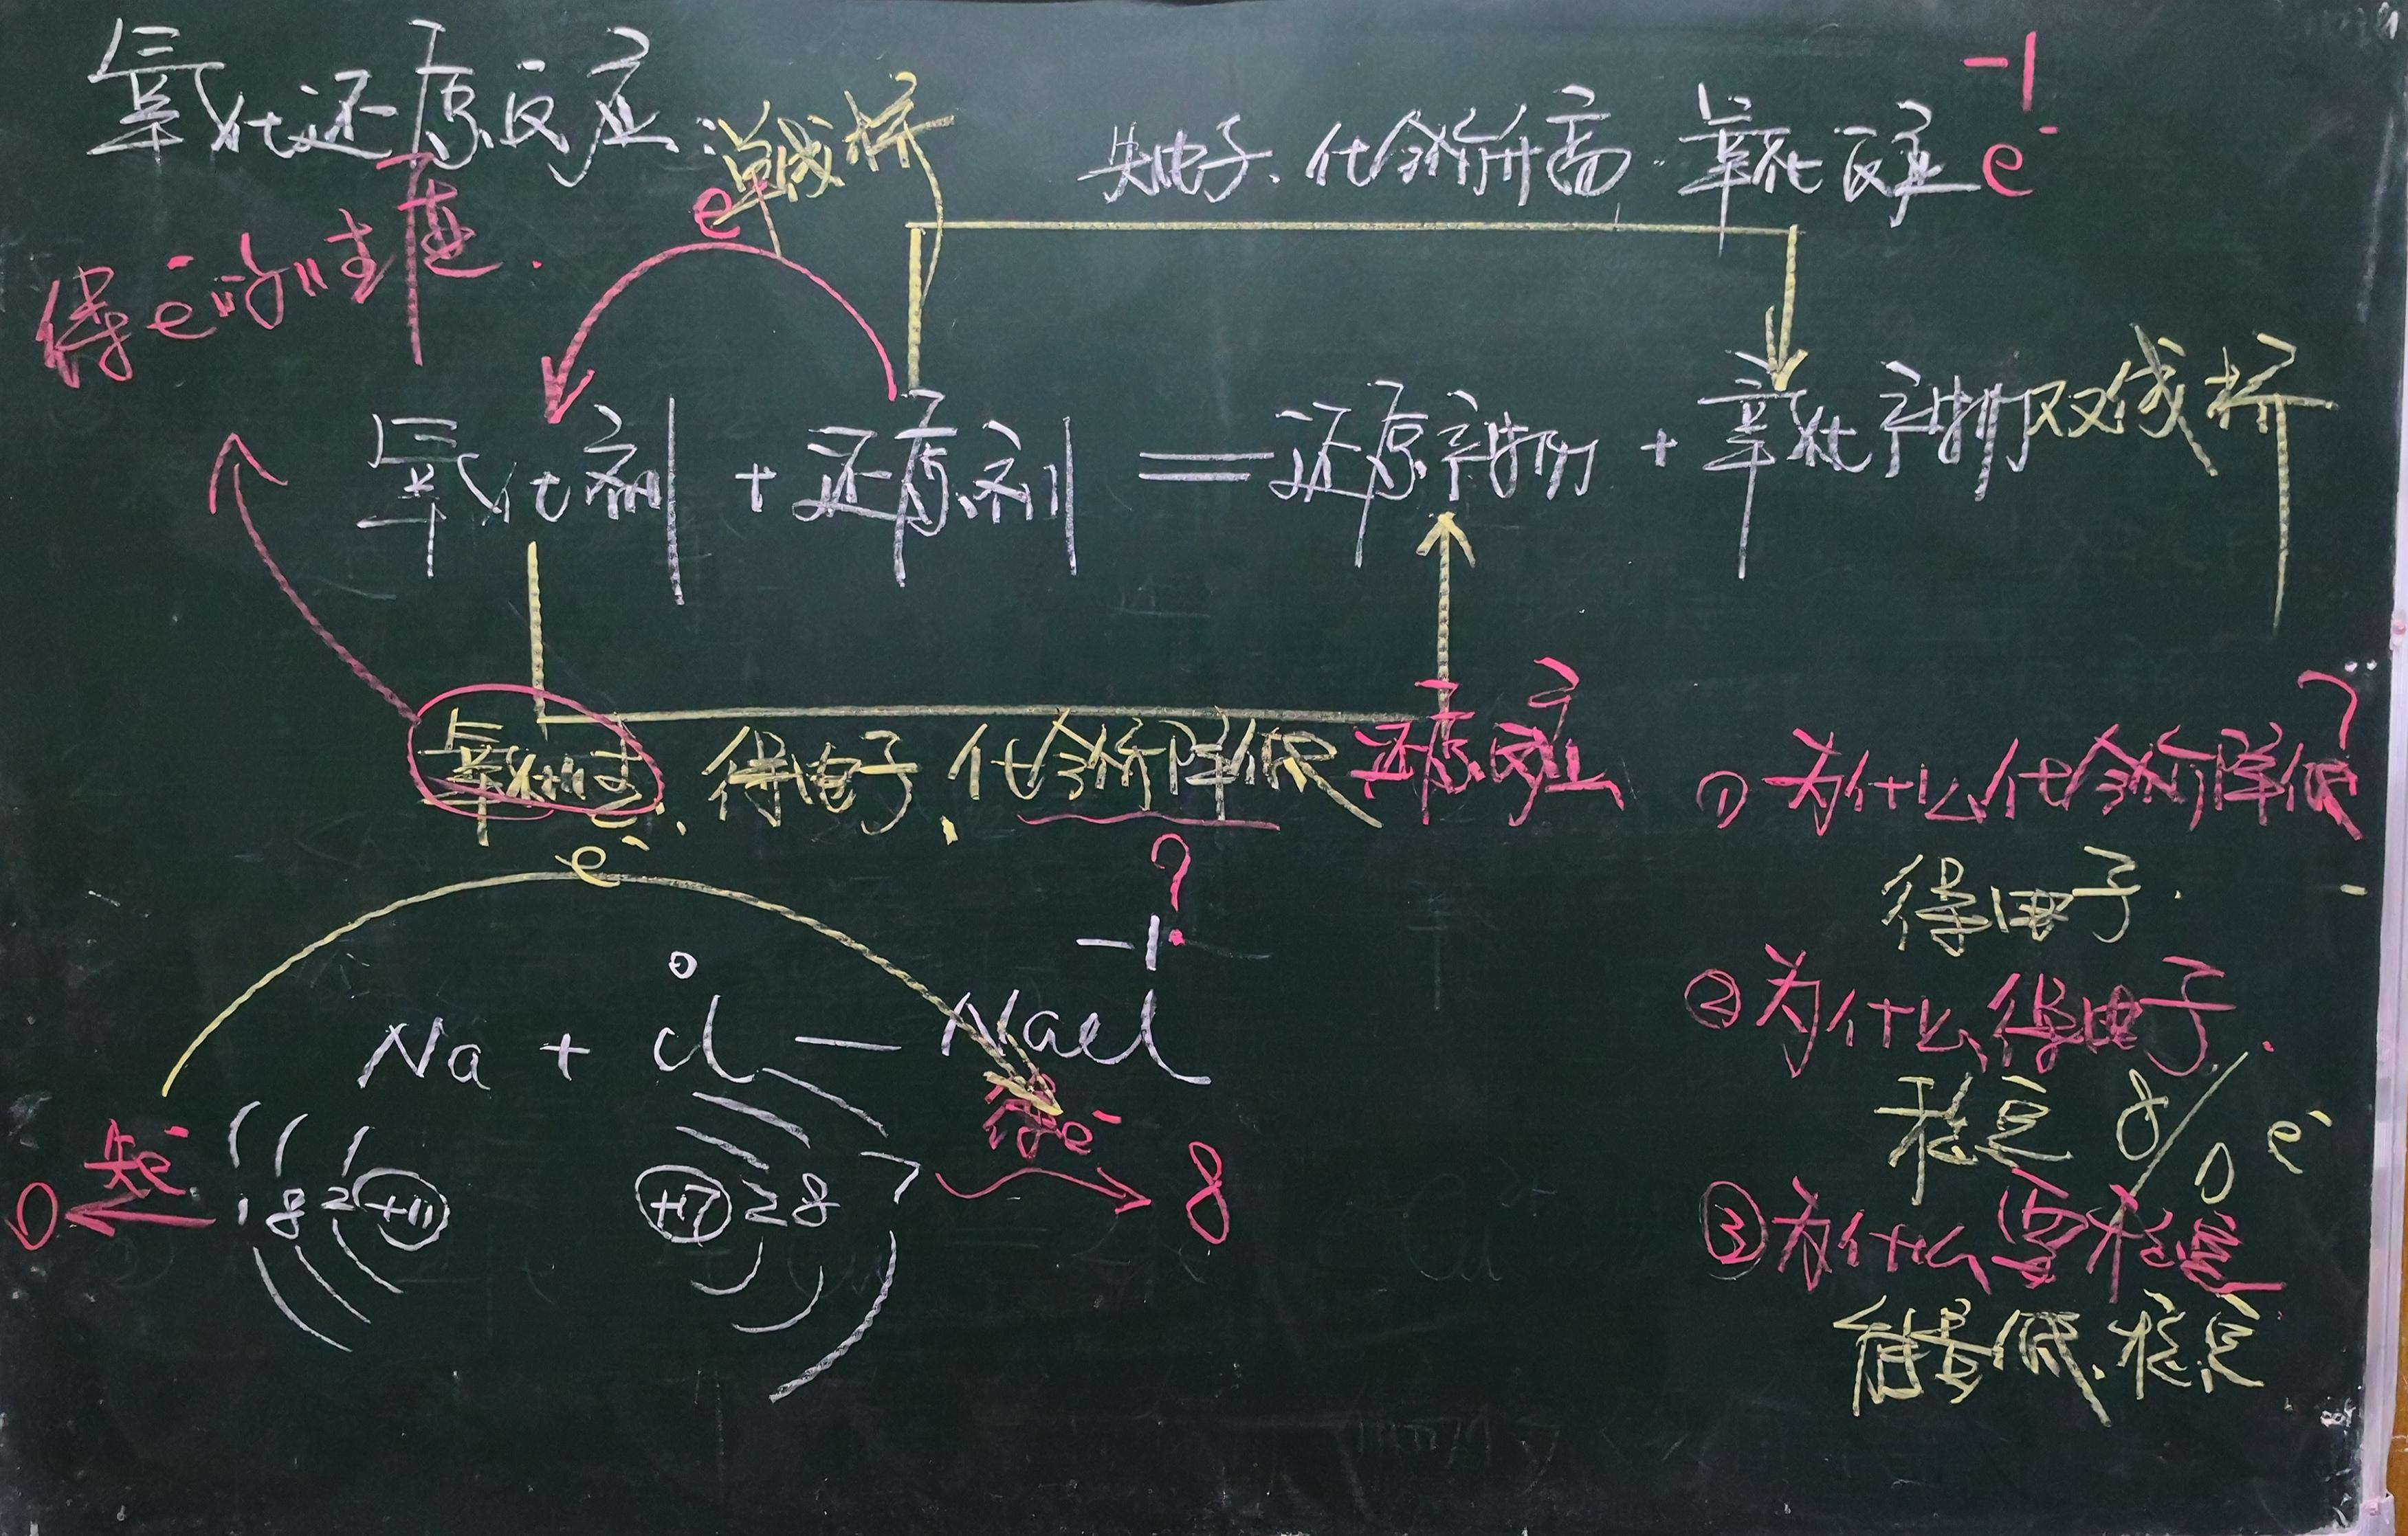 氧化还原反应:单线桥
-1
失电子、化合价升高 氧化反应 e⁻
得e⁻的"性质".
e⁻
氧化剂 + 还原剂 == 还原产物 + 氧化产物 双线桥
氧化性、得电子、化合价降低 还原反应
e⁻
?
0 -1
Na + Cl — NaCl
失e⁻ 得e⁻
0 1 8 2 +11 +17 2 8 7 8
①为什么化合价降低?
得电子.
②为什么得电子.
稳定 8/0 e⁻
③为什么要稳定
能量低.稳定